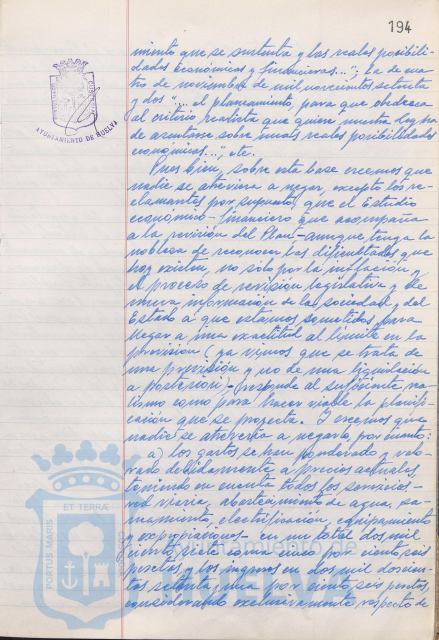 194
miento que se sustenta y las reales posibili-
dades económicas y financieras...", La de cua-
tro de noviembre de mil novecientos setenta
y dos "... el planeamiento, para que obedezca
al criterio realista que quiere nuestra ley, ha
de asentarse sobre unas reales posibilidades
económicas...", etc.
Pues bien, sobre esta base creemos que
nadie se atreviera a negar, excepto los re-
clamantes por supuesto, que el Estudio
económico-financiero que acompaña
a la revisión del Plan -aunque tenga la
nobleza de reconocer las dificultades que
hoy existen, no sólo por la inflación y
el proceso de revisión legislativa y de
nueva información de la sociedad y del
Estado a que estamos sometidos para
llegar a una exactitud al límite en la
previsión (ya vimos que se trata de
una previsión y no de una liquidación
a posteriori)- responde al suficiente rea-
lismo como para hacer viable la planifi-
cación que se proyecta. Y creemos que
nadie se atreverá a negarlo, por cuanto:
a) los gastos se han ponderado y valo-
rado debidamente a precios actuales,
teniendo en cuenta todos los servicios-
red viaria, abastecimiento de agua, sa-
neamiento, electrificación, equipamiento
y expropiaciones- en un total dos mil
ciento siete coma cinco por ciento seis
pesetas y los ingresos en dos mil doscien-
tos setenta, una por ciento seis pesetas,
considerando exclusivamente respecto de
AYUNTAMIENTO DE HUELVA
PORTUS MARIS
ET TERRAE